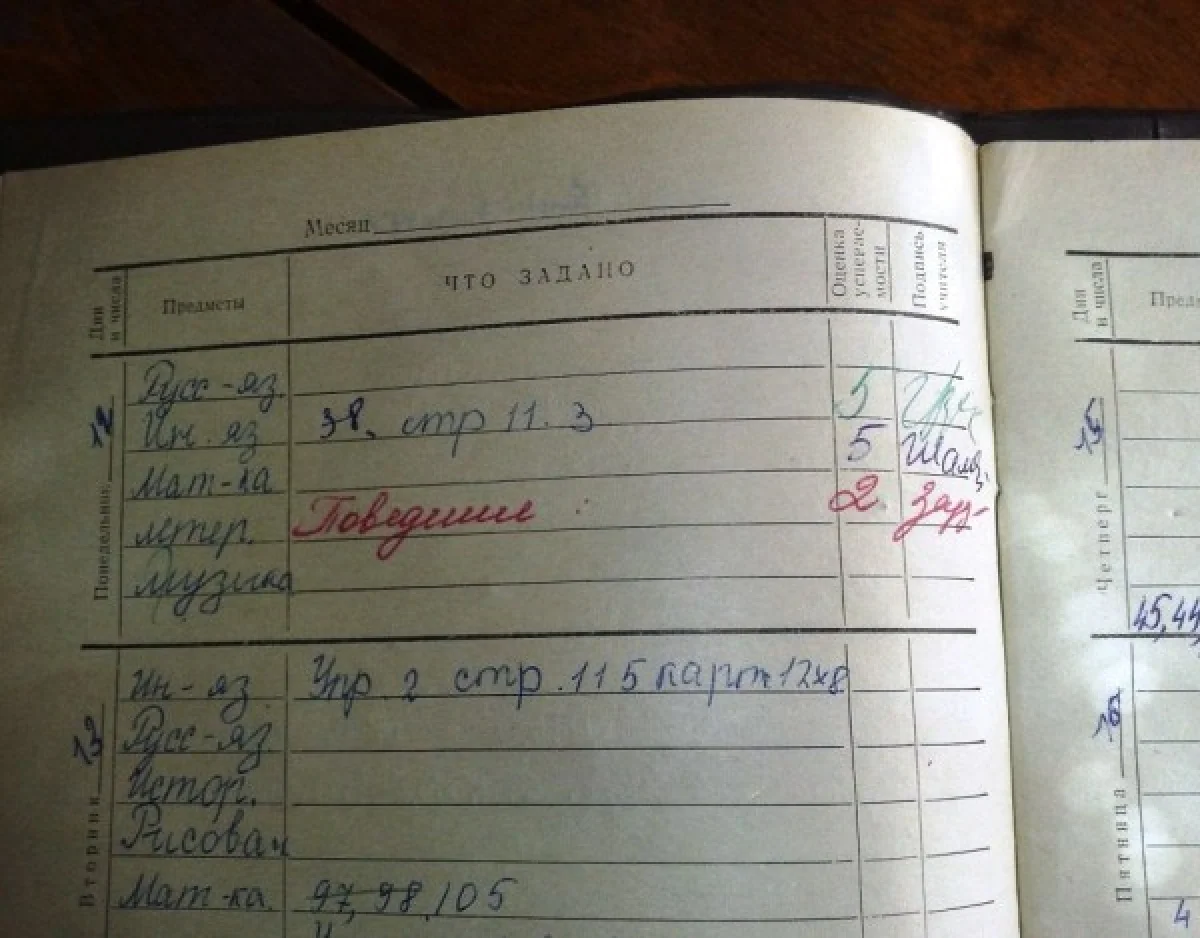 Месяц
Дни и числа
Предметы
ЧТО ЗАДАНО
Оценка успевае-мости
Подпись учителя
Понедельник 12
Русс-яз. 5
Ин. яз 38, стр 11. 3 5
Мат-ка
литер. Поведение : 2
музыка
Вторник 13
Ин-яз Упр 2 стр. 115 карт 12х8
Русс-яз.
Истор.
Рисован
Мат-ка. 97, 98, 105
Дни и числа
Пред
Четверг 15
45, 44
Пятница 16
4